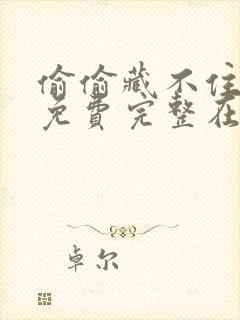 偷偷藏不住
免费完整在
卓尔